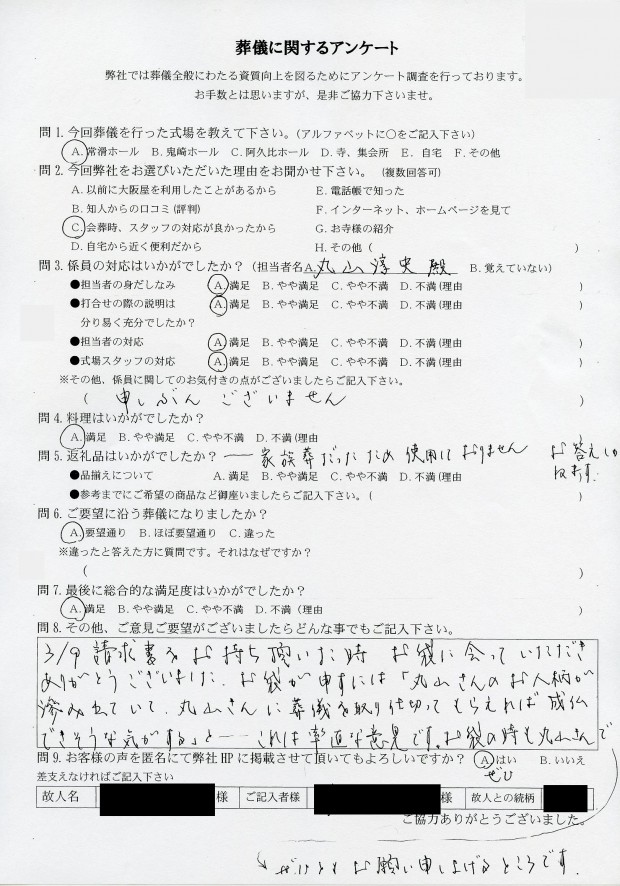 葬儀に関するアンケート
弊社では葬儀全般にわたる資質向上を図るためにアンケート調査を行っております。
お手数とは思いますが、是非ご協力下さいませ。
問 1. 今回葬儀を行った式場を教えて下さい。(アルファベットに○をご記入下さい)
A. 常滑ホール B. 鬼崎ホール C. 阿久比ホール D. 寺、集会所 E. 自宅 F. その他
問 2. 今回弊社をお選びいただいた理由をお聞かせ下さい。 (複数回答可)
A. 以前に大阪屋を利用したことがあるから E. 電話帳で知った
B. 知人からの口コミ(評判) F. インターネット、ホームページを見て
C. 会葬時、スタッフの対応が良かったから G. お寺様の紹介
D. 自宅から近く便利だから H. その他 ( )
問 3. 係員の対応はいかがでしたか? (担当者名A. 丸山淳史殿 B. 覚えていない)
●担当者の身だしなみ A. 満足 B. やや満足 C. やや不満 D. 不満(理由 )
●打合せの際の説明は A. 満足 B. やや満足 C. やや不満 D. 不満(理由 )
分り易く充分でしたか?
●担当者の対応 A. 満足 B. やや満足 C. やや不満 D. 不満(理由 )
●式場スタッフの対応 A. 満足 B. やや満足 C. やや不満 D. 不満(理由 )
※その他、係員に関してのお気付きの点がございましたらご記入下さい。
( 申しぶんございません )
問 4. 料理はいかがでしたか?
A. 満足 B. やや満足 C. やや不満 D. 不満(理由
問 5. 返礼品はいかがでしたか? ー 家族葬だったため使用しておりません お答えしか
ねます.
●品揃えについて A. 満足 B. やや満足 C. やや不満 D. 不満(理由
●参考までにご希望の商品など御座いましたらご記入下さい。( )
問 6. ご要望に沿う葬儀になりましたか?
A. 要望通り B. ほぼ要望通り C. 違った
※違ったと答えた方に質問です。それはなぜですか?
( )
問 7. 最後に総合的な満足度はいかがでしたか?
A. 満足 B. やや満足 C. やや不満 D. 不満(理由 )
問 8. その他、ご意見ご要望がございましたらどんな事でもご記入下さい。
3/9 請求書をお持ち頂いた時 お袋に会っていただき
ありがとうございました. お袋が申すには「丸山さんのお人柄が
滲み出ていて、丸山さんに葬儀を取り仕切ってもらえれば成仏
できそうな気がする」と―― これは率直な意見です。お袋の時も丸山さんで
問 9. お客様の声を匿名にて弊社 HP に掲載させて頂いてもよろしいですか? A. はい B. いいえ
ぜひ
差支えなければご記入下さい
故人名 様 ご記入者様 様 故人との続柄
ご協力ありがとうございました。
お願い申し上げるところです.